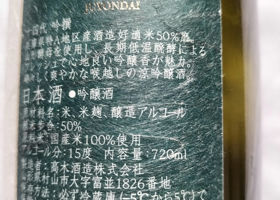 十四代 吟撰
地区産酒造好適米50%
を使用し、長期低温醗酵による
シュで心地良い吟醸香が魅力。
しく爽やかな喉越しの涼吟醸酒。
日本酒 ●吟醸酒
米、米麹、醸造アルコール
50%
国産米100%使用
分:15度 内容量:720ml
高木酒造株式会社
村山市大字富並1826番地
方法:必ず冷蔵庫(−5℃から5℃で